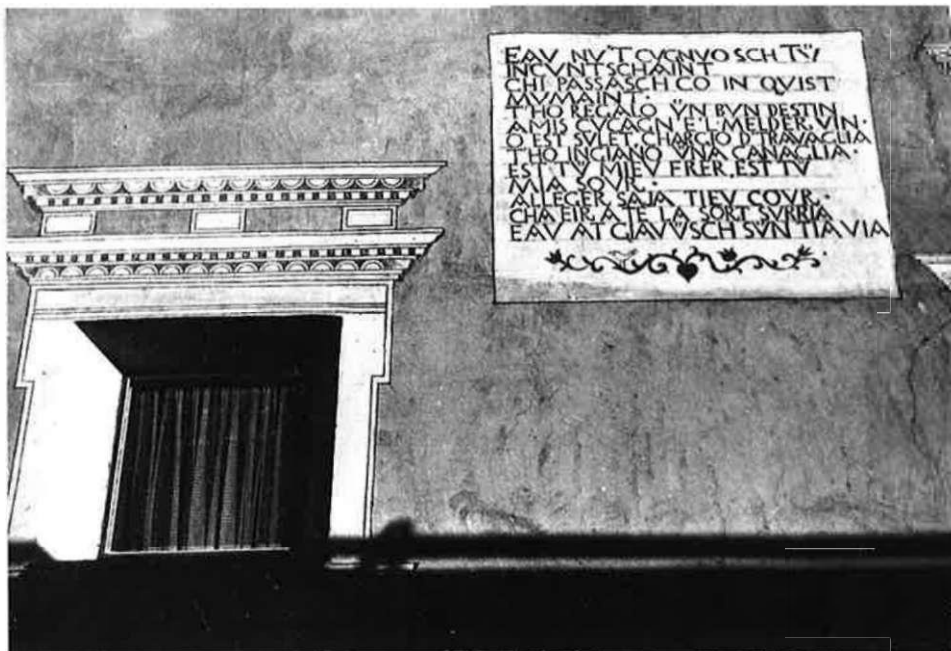 EAU NU'T CUGNUOSCH TÜ,
INCUNTSCHAINT
CHI PASSASCH CO IN QUIST
MUMAINT.
T'HO REGALO ÜN BUN DESTIN
AMIS CUCAGNE E L MELDER VIN.
O EST SULET, CHARGIO D TRAVAGLIA
T'HO INGIANO ÜNA CANAGLIA.
EST TU MIEU FRER, EST TU
MIA SOUR.
ALLEGER SAJA TIEU COUR.
CHA EIR A TE LA SORT SURRIA
EAU AT GIAVÜSCH SÜN TIA VIA